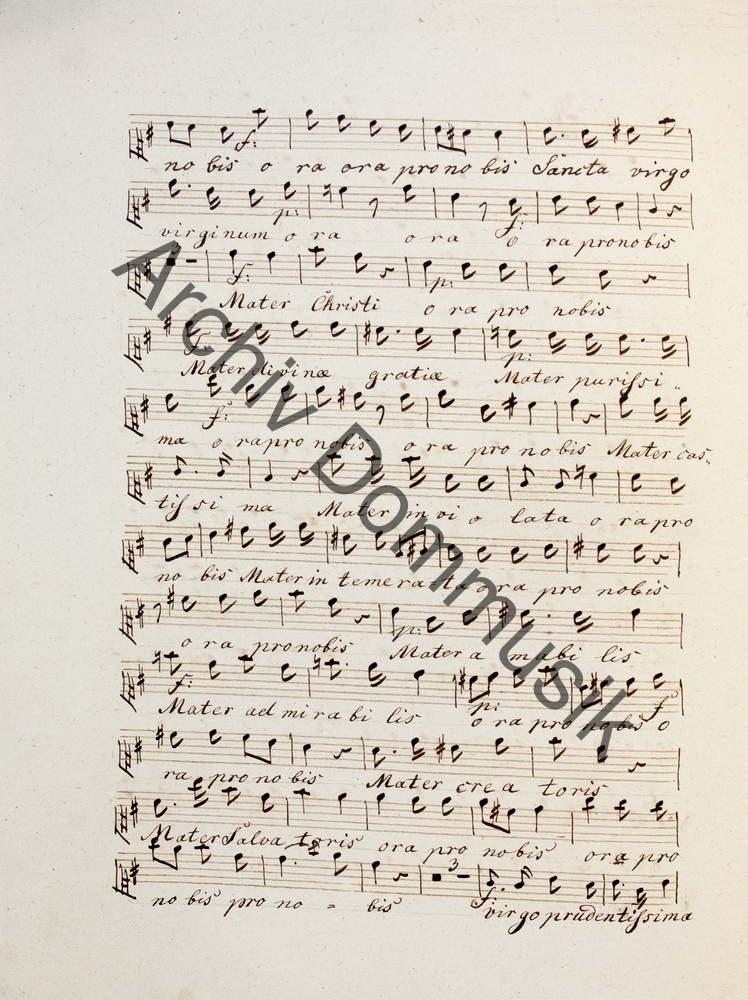 f:
no bis o ra ora pro no bis Sancta virgo
p: f:
virginum o ra ora o ra pro no bis
3 f: p:
Mater Christi o ra pro nobis
f: p:
Mater divinæ gratiæ Mater purissi -
f:
ma o ra pro nobis o ra pro no bis Mater cas-
tis si ma Mater in vi o lata o ra pro
no bis Mater in temera-ta ora pro nobis
p:
o ra pro nobis Mater a mabi lis
f: p: f
Mater ad mi ra bi lis o ra pro no bis o
ra pro no bis Mater crea toris
Mater Salva toris ora pro no bis ora pro
3 f:
no bis pro no = bis virgo prudentissima
Archiv Dommusik